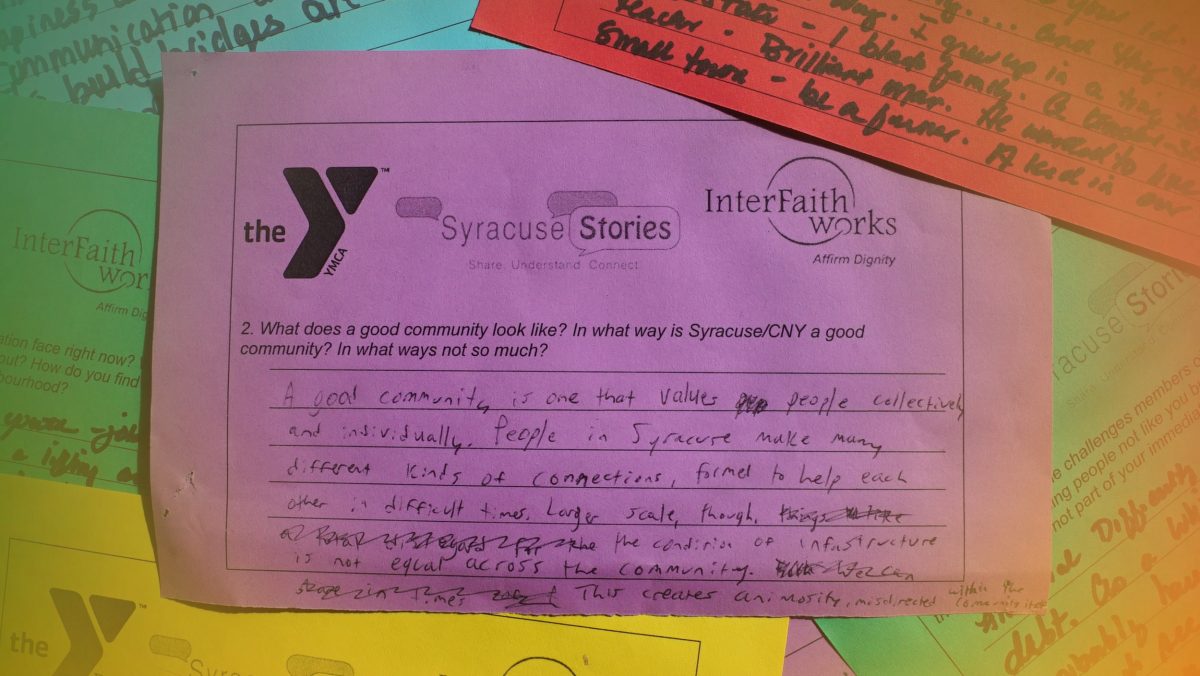 Communication
build bridges are
I grew up in a tiny
1 black family. A
teacher - Brilliant man. He wanted to
small town - be a farmer. A kid in our
the
YMCA
™
Syracuse Stories
Share. Understand. Connect.
InterFaith
works
Affirm Dignity
2. What does a good community look like? In what way is Syracuse/CNY a good
community? In what ways not so much?
A good community is one that values people collectively
and individually. People in Syracuse make many
different kinds of connections, formed to help each
other in difficult times. Larger scale, though, things like
the the condition of infastructure
is not equal across the community. We can
in times This creates animosity, misdirected within the
community itself
InterFaith
wor
Affirm Dig
ation face right now?
out? How do you find
bourhood?
a living
the
™
Syra
racuse Stori
Share. Under
e challenges members o
ng people not like you
not part of your immedi
Difficulty
debt. As a